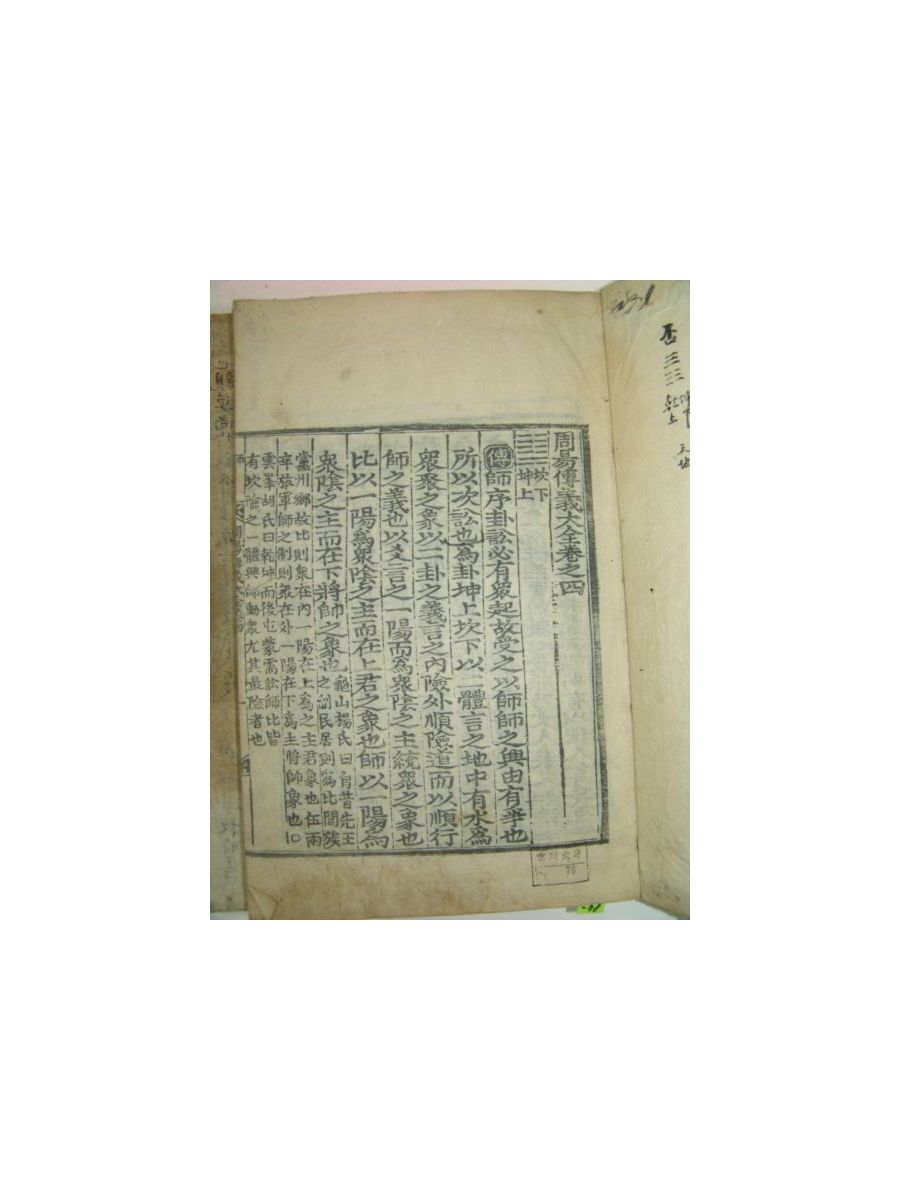 否
坤下
乾上
周易傳義大全卷之四
坎下
坤上
傳師序卦訟必有衆起故受之以師師之興由有爭也
所以次訟也爲卦坤上坎下以二體言之地中有水爲
衆聚之象以二卦之義言之內險外順險道而以順行
師之義也以爻言之一陽而爲衆陰之主統衆之象也
比以一陽爲衆陰之主而在上君之象也師以一陽爲
衆陰之主而在下將帥之象也
龜山楊氏曰自昔先王
之制民居則爲比閭族
黨州鄉故比則衆在內一陽在上爲之主君象也伍兩
卒旅軍師之制則衆在外一陽在下爲主將帥象也○
雲峯胡氏曰乾坤而後屯蒙需訟師比皆
有坎險之一體興師動衆尤其最險者也
师
78